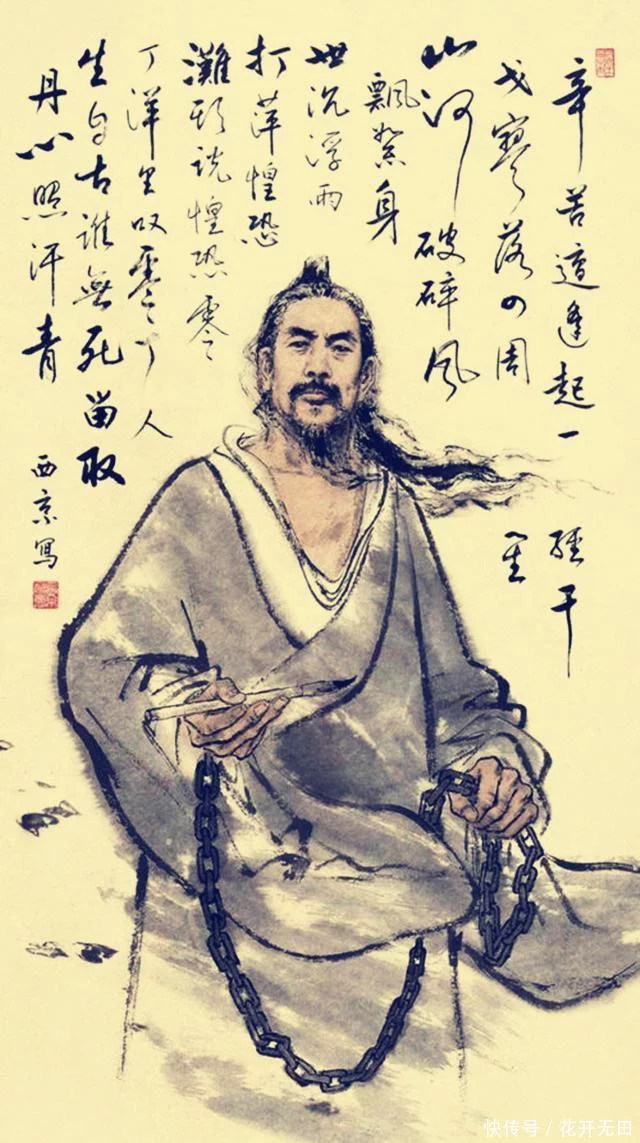 辛苦遭逢起一經干
戈寥落四周星
山河破碎风
飄絮身
世沉浮雨
打萍惶恐
灘头说惶恐零
丁洋里叹零丁人
生自古谁無死留取
丹心照汗青
西京寫
快传号／花开无田